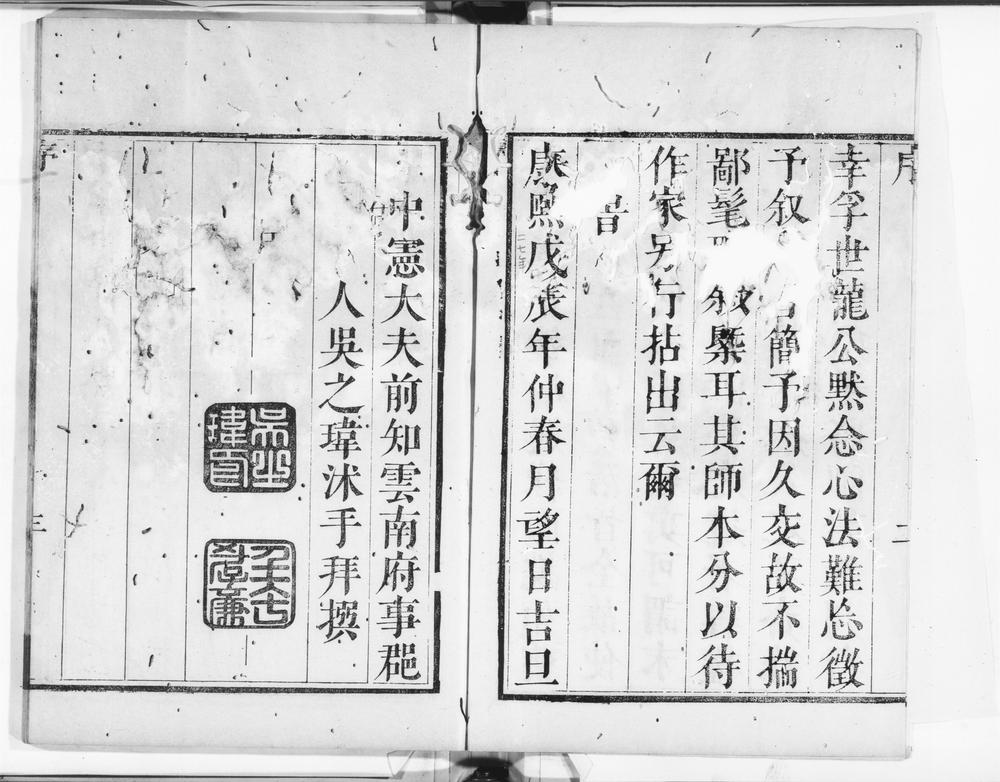 序
二
幸孚世龍公黙念心法難忘徵
予叙簡予因久交故不揣
鄙髦叙槩耳其師本分以待
作家另行拈出云爾
旹
康熙戊辰年仲春月望日吉旦
中憲大夫前知雲南府事郡
人吳之瑋沐手拜撰
吳之瑋印
孝廉
序
三